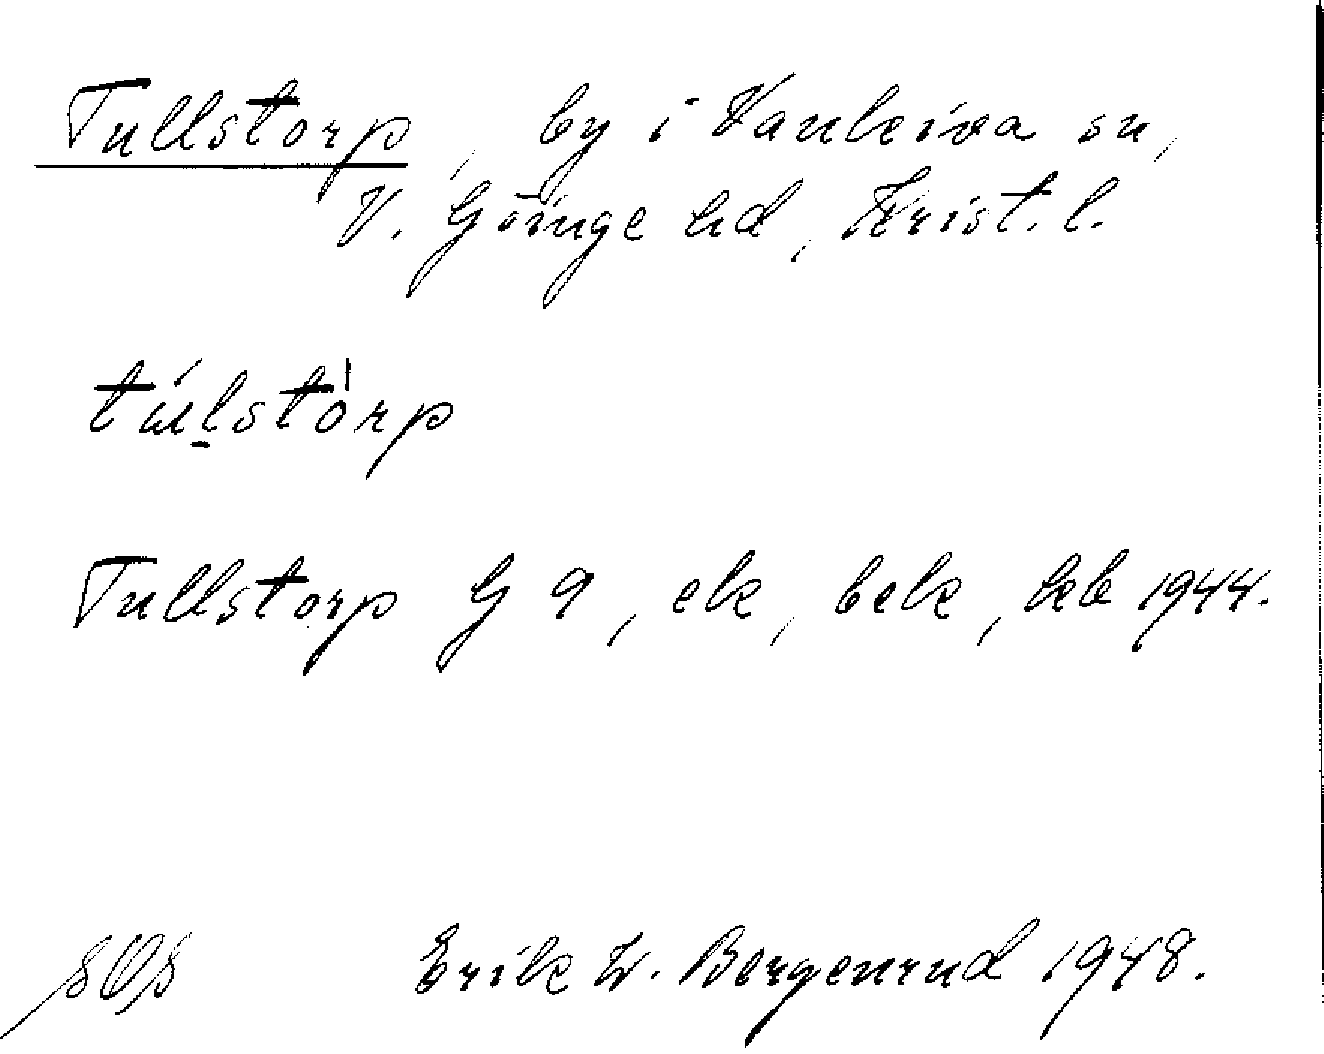 Tullstorp, by i Vankiva sn,
V. Göinge hd, Krist. l.
túlstòrp
Tullstorp G 9, ek, bek, kb 1944.
Erik W. Bergenrud 1948.